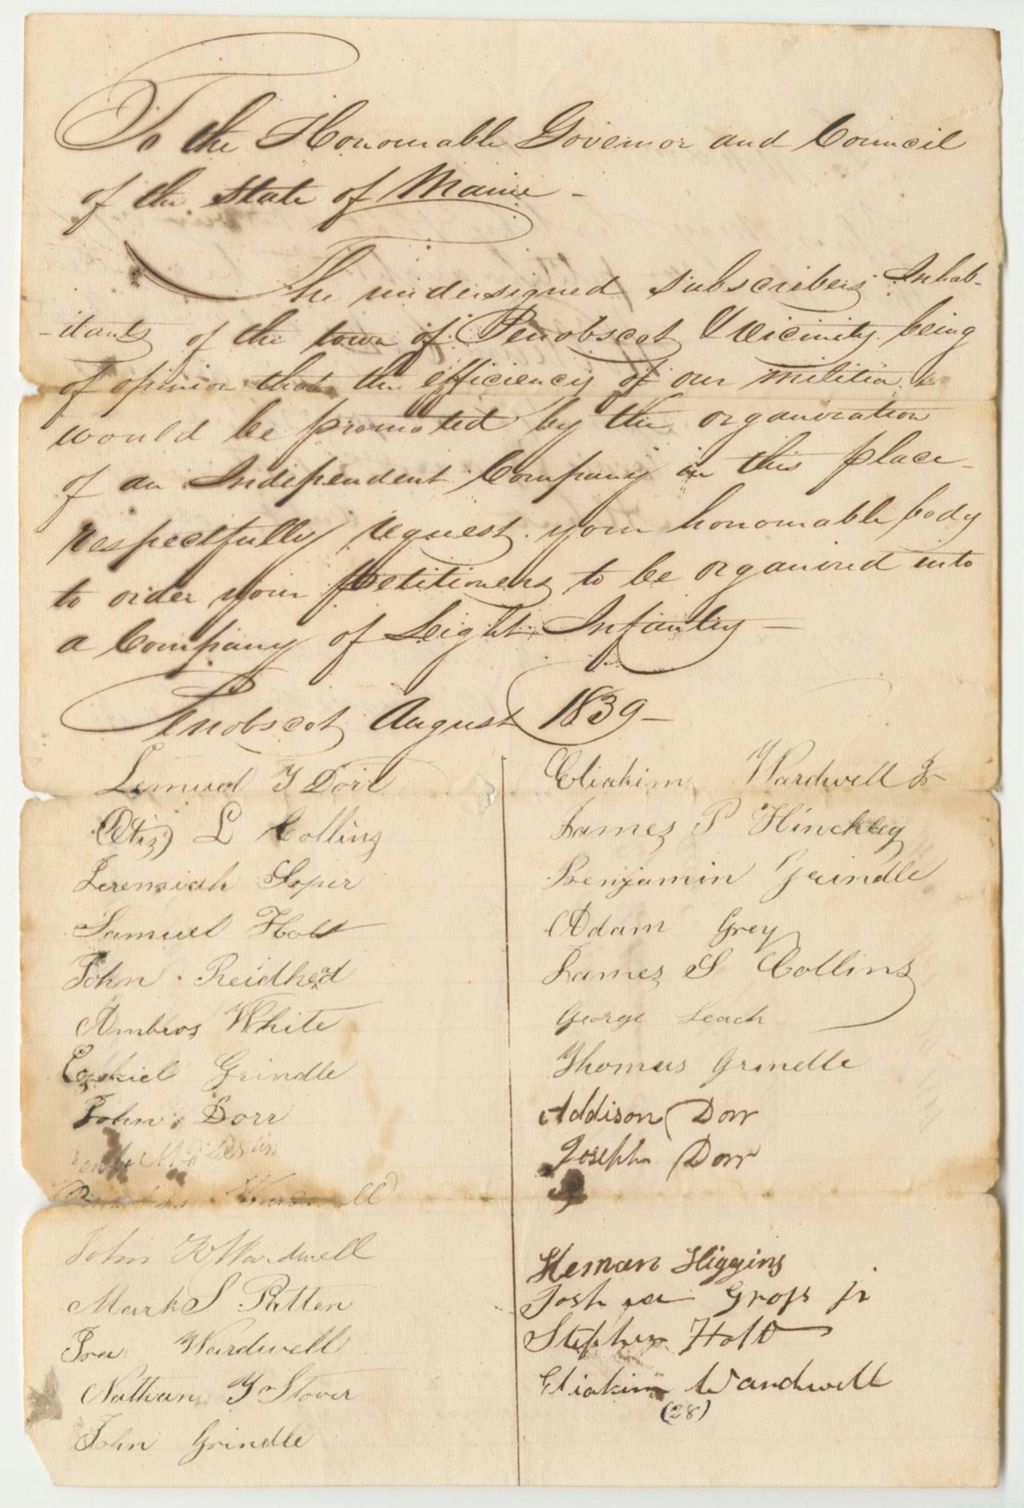 To the Honourable Governor and Council
of the State of Maine -
The undersigned subscribers Inhab-
-itants of the town of Penobscot & vicinity being
of opinion that the efficiency of our militia
would be promoted by the organization
of an Independent Company in this place -
respectfully request your honourable body
to order your petitioners to be organized into
a Company of Light Infantry -
Penobscot August 1839 -
Lemuel Y Dorr
Otis L Collins
Jeremiah Soper
Samuel Holt
John Reidhed
Ambros White
Ezekiel Grindle
John Dorr
John Wardwell
Mark S Patten
Ira Wardwell
Nathan Stover
John Grindle
Eliakim Wardwell Jr
James P Hinckley
Benjamin Grindle
Adam Grey
James S Collins
George Leach
Thomas Grindle
Addison Dorr
Joseph Dorr
Heman Higgins
Joshua Gross jr
Stephen Holt
Eliakim Wardwell
(28)